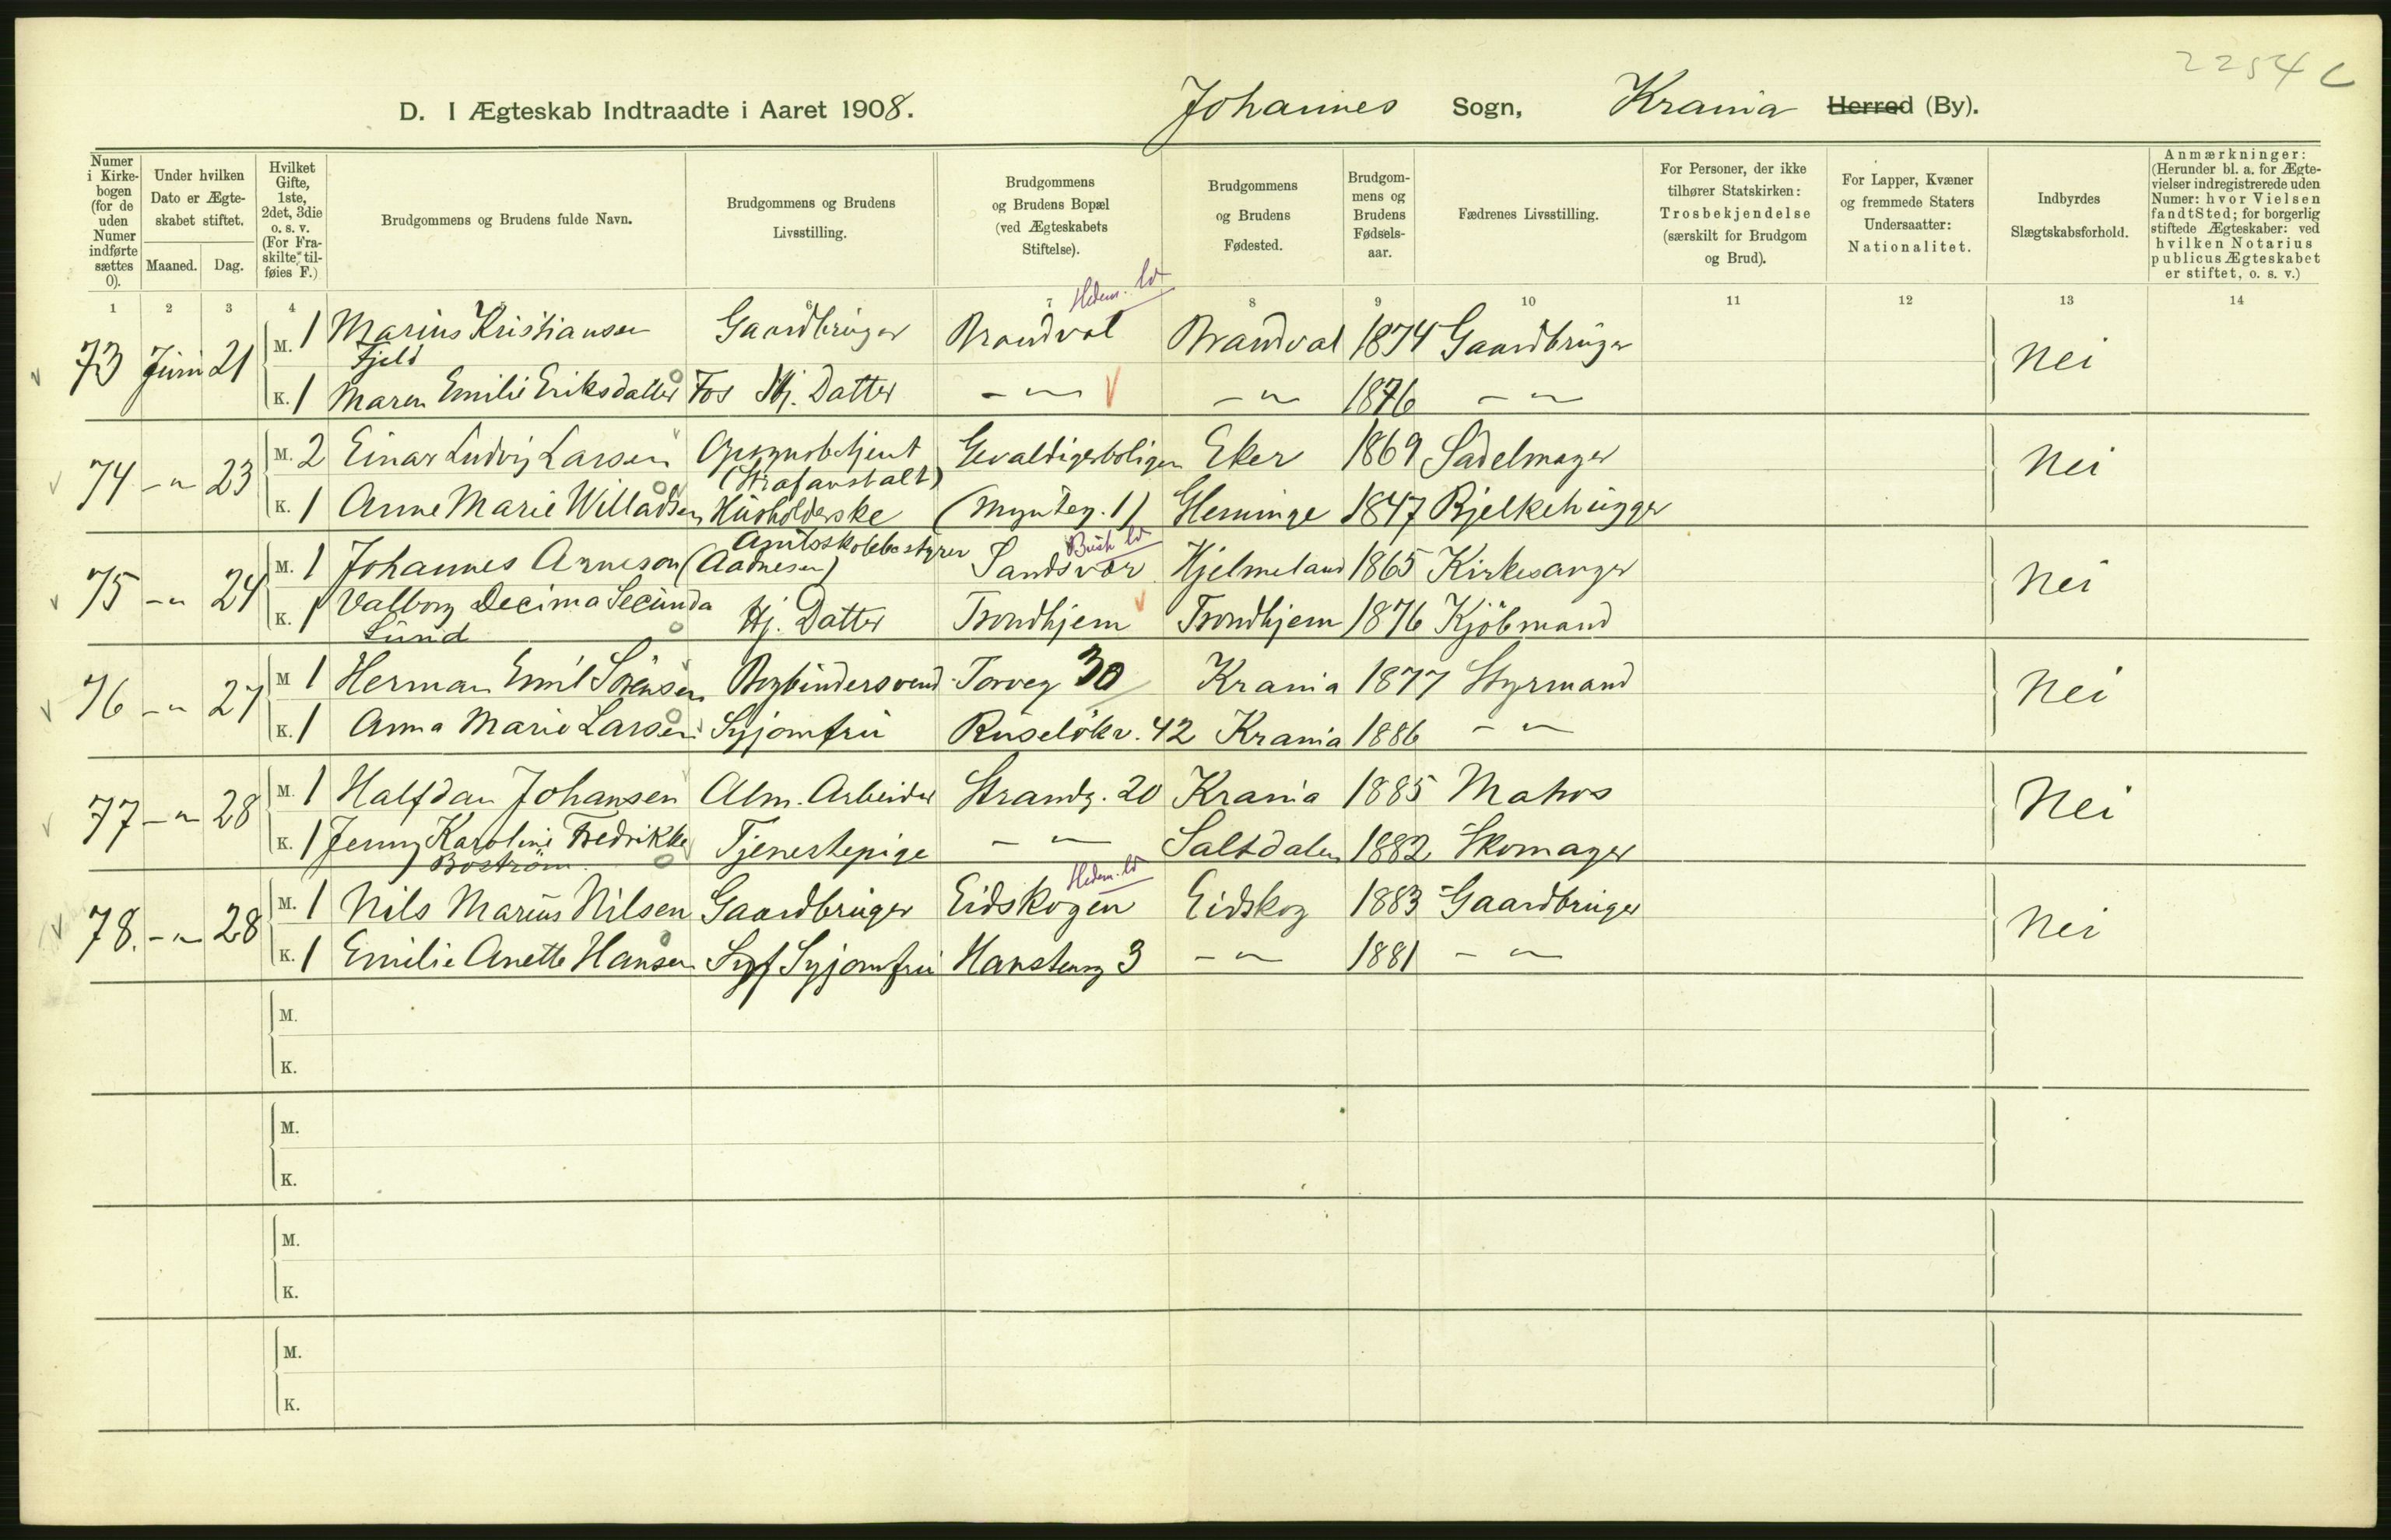 2254 c
D. I Ægteskab Indtraadte i Aaret 1908. Johannes Sogn, Krania Herred (By).
Numer i Kirkebogen (for de uden Numer indførte sættes 0).
Under hvilken Dato er Ægteskabet stiftet.
Maaned. Dag.
Hvilket Gifte, 1ste, 2det, 3die o. s. v. (For Fraskilte tilføies F.)
Brudgommens og Brudens fulde Navn.
Brudgommens og Brudens Livsstilling.
Brudgommens og Brudens Bopæl (ved Ægteskabets Stiftelse).
Brudgommens og Brudens Fødested.
Brudgommens og Brudens Fødselsaar.
Fædrenes Livsstilling.
For Personer, der ikke tilhører Statskirken: Trosbekjendelse (særskilt for Brudgom og Brud).
For Lapper, Kvæner og fremmede Staters Undersaatter: Nationalitet.
Indbyrdes Slægtskabsforhold.
Anmærkninger: (Herunder bl. a. for Ægtevielser indregistrerede uden Numer: hvor Vielsen fandt Sted; for borgerlig stiftede Ægteskaber: ved hvilken Notarius publicus Ægteskabet er stiftet, o. s. v.)
1 2 3 4 5 6 7 8 9 10 11 12 13 14
Hedem. ld
73 Juni 21 M. 1 Marius Kristiansen Gaardbruger Brandval Brandval 1874 Gaardbruger Nei
Fjeld
K. 1 Maren Emilie Eriksdatter Fos Hj. Datter - " - " 1876 - "
74 - " 23 M. 2 Einar Ludvig Larsen Opsynsbetjent Gevaldigerboligen Eker 1869 Sadelmager Nei
(Strafanstalt)
K. 1 Anne Marie Willadsen Husholderske (Myntg. 1) Heminge 1847 Bjelkehugger
Amtsskolebestyrer Busk ld
75 - " 24 M. 1 Johannes Arneson (Aadnesen) Sandsvær Hjelmeland 1865 Kirkesanger Nei
K. 1 Valborg Decima Secunda Hj. Datter Trondhjem Trondhjem 1876 Kjöbmand
Lund
76 - " 27 M 1 Herman Emil Sörensen Bogbindersvend Torveg 30 Krania 1877 Styrmand Nei
K. 1 Anna Marie Larsen Syjomfru Ruselökv. 42 Krania 1886 - "
77 - " 28 M. 1 Halfdan Johansen Alm. Arbeider Strandg. 20 Krania 1885 Matros Nei
K. 1 Jenny Karoline Fredrikke Tjenestepige - " Saltdalen 1882 Skomager
Boström
Hedem. ld
78. - " 28 M. 1 Nils Marius Nilsen Gaardbruger Eidskogen Eidskog 1883 Gaardbruger Nei
K. 1 Emilie Anette Hansen Syjomfru Hansteeng 3 - " 1881 - "
M.
K.
M.
K.
M.
K.
M.
K.